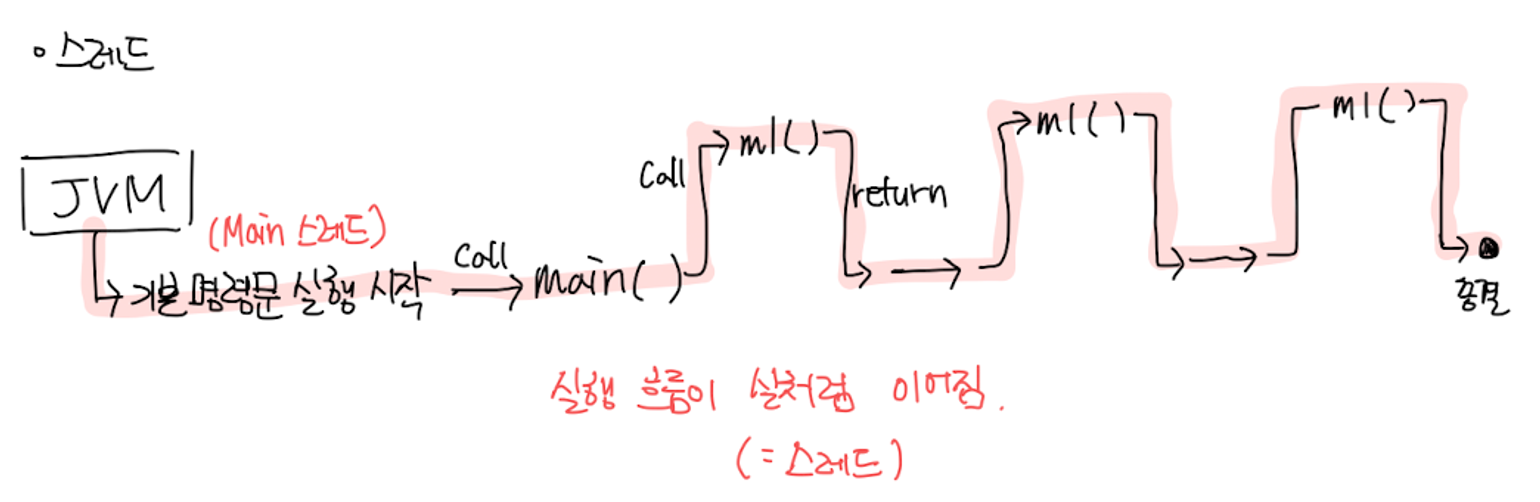 • 스레드
JVM
(Main 스레드)
기본 명령문 실행 시작
call
main()
call
m1()
return
m1()
m1()
종결
실행 흐름이 실처럼 이어짐.
(= 스레드)